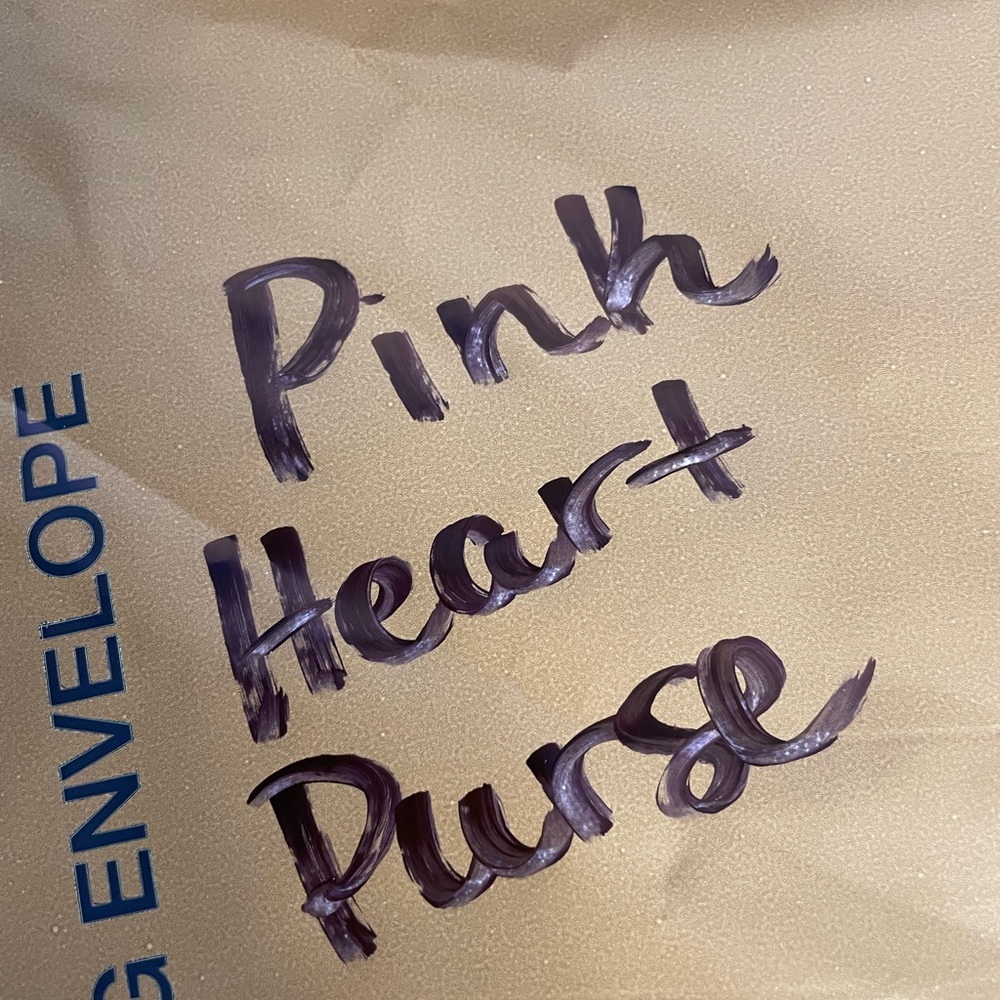 Pink
Heart
Purse
G ENVELOPE